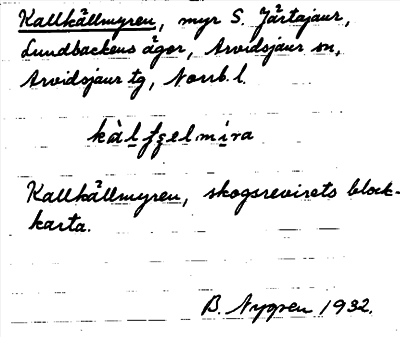 Kallkällmyren, myr S. Järtajaur,
Lundbackens ägor, Arvidsjaur sn,
Arvidsjaur tg, Norrb. l.
kàlfʂelmíra
Kallkällmyren, skogsrevirets block-
karta.
B. Nygren 1932.